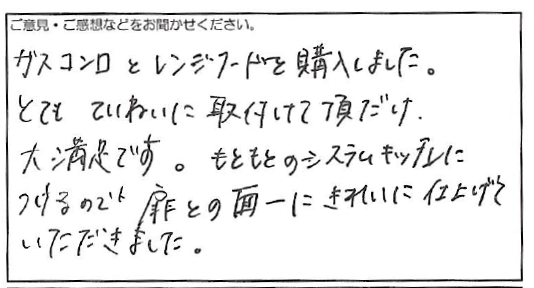 ご意見・ご感想などをお聞かせください。
ガスコンロとレンジフードを購入しました。
とても ていねいに 取付けて頂だけ、
大満足です。もともとのシステムキッチンに
つけるのでも 扉との面一に きれいに仕上げて
いただきました。